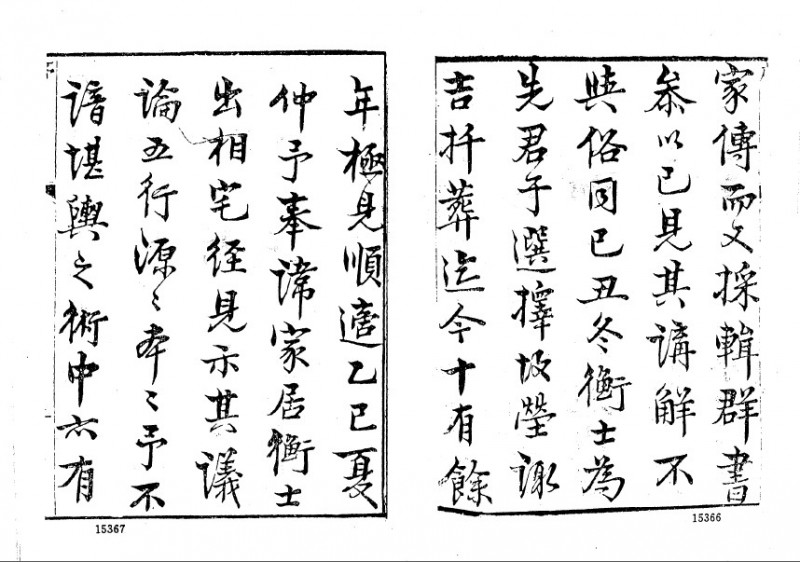 家傳而又採輯群書
叅以己見其講解不
與俗同己丑冬衡士為
先君子選擇坟塋諏
吉扦葬迄今十有餘
15366
年極見順適乙巳夏
仲予奉諱家居衡士
出相宅径見示其議
論五行源〻本〻予不
諳堪輿之術中亦有
15367